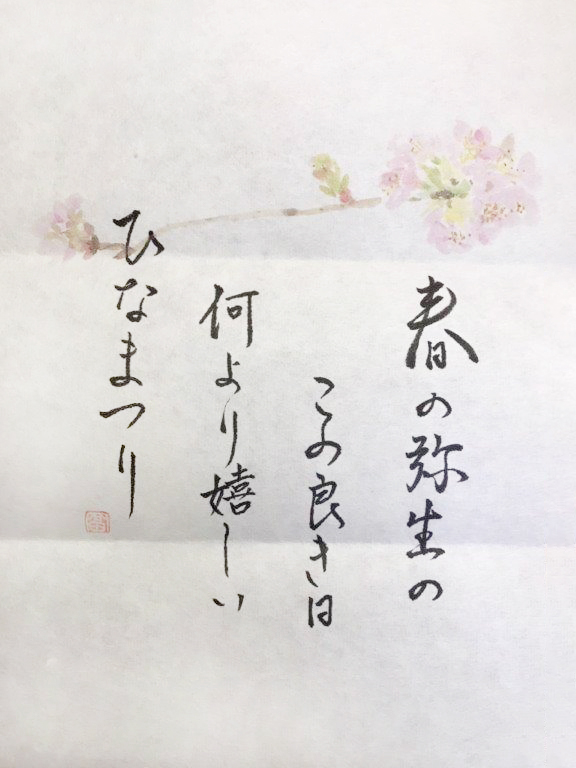 春の弥生の
この良き日
何より嬉しい
ひなまつり